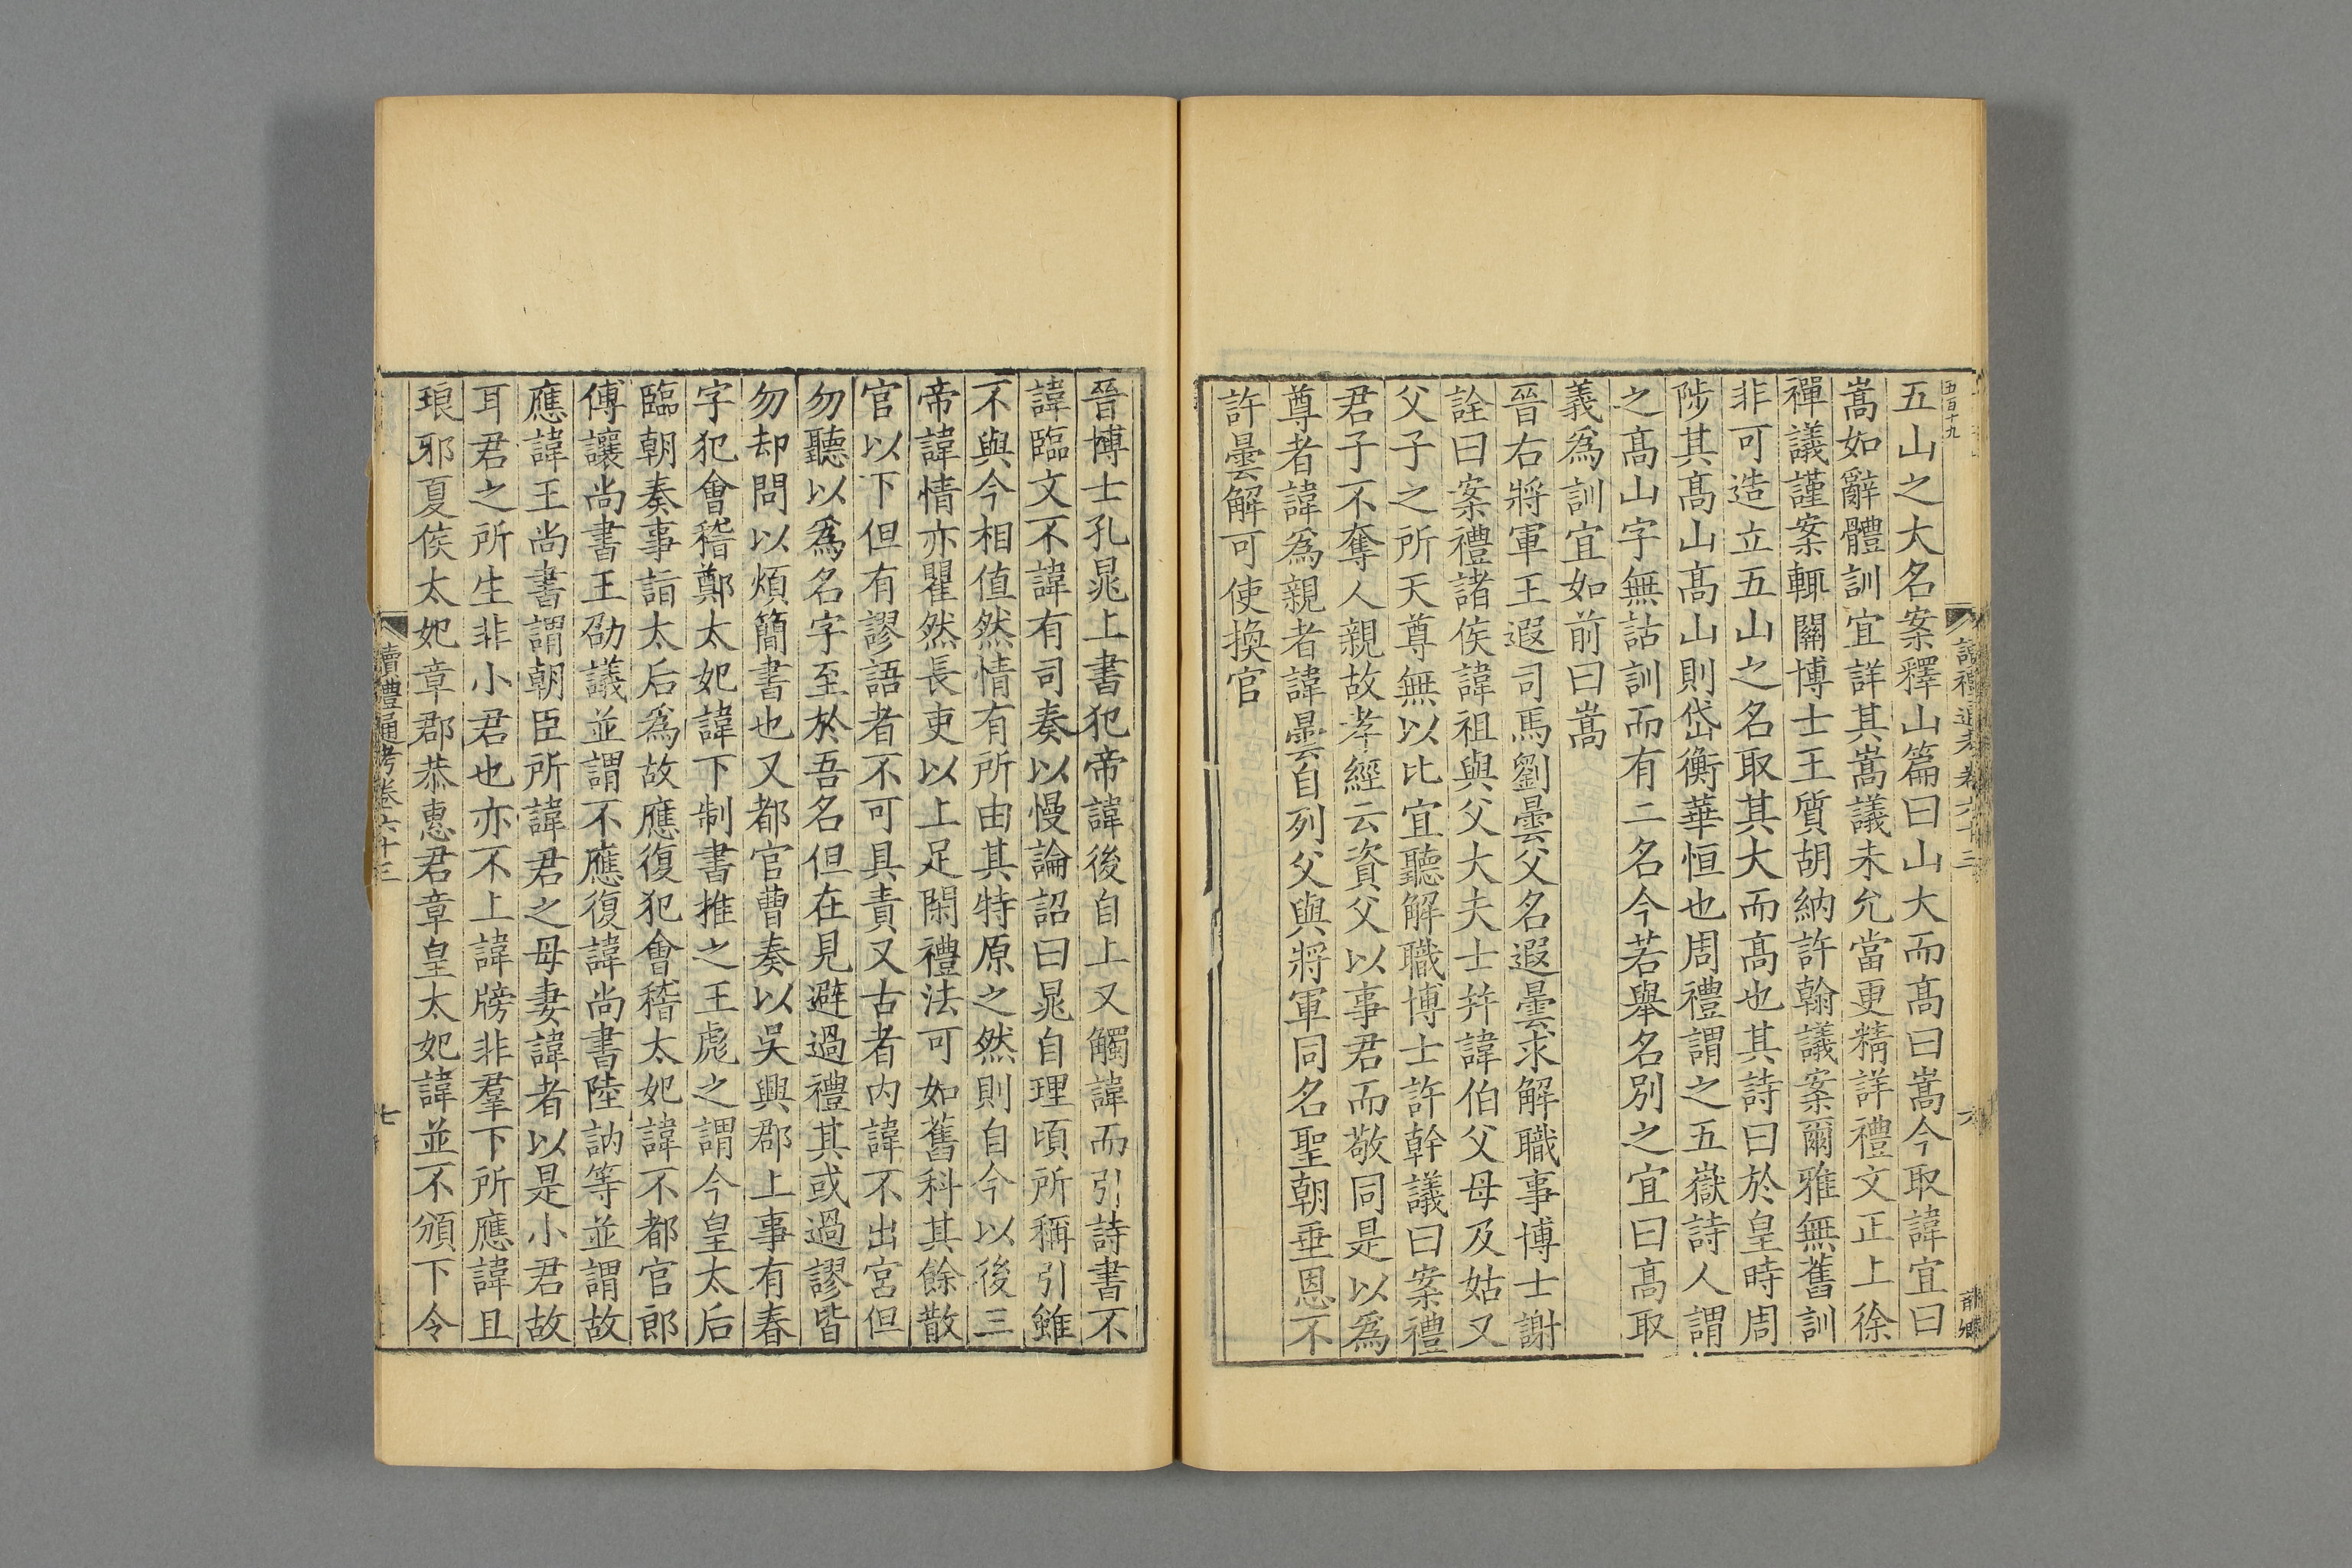 五百十九
讀禮通考卷六十三
六
五山之大名案釋山篇曰山大而髙曰嵩今取諱宜曰
嵩如辭體訓宜詳其嵩議未允當更精詳禮文正上徐
禪議謹案輒關博士王質胡納許翰議案爾雅無舊訓
非可造立五山之名取其大而髙也其詩曰於皇時周
陟其髙山髙山則岱衡華恒也周禮謂之五嶽詩人謂
之髙山字無詁訓而有二名今若舉名別之宜曰髙取
義爲訓宜如前曰嵩
晉右將軍王遐司馬劉曇父名遐曇求解職事博士謝
詮曰案禮諸侯諱祖與父大夫士幷諱伯父母及姑又
父子之所天尊無以比宜聽解職博士許幹議曰案禮
君子不奪人親故孝經云資父以事君而敬同是以爲
尊者諱爲親者諱曇自列父與將軍同名聖朝垂恩不
許曇解可使換官
晉博士孔晁上書犯帝諱後自上又觸諱而引詩書不
諱臨文不諱有司奏以慢論詔曰晁自理頃所稱引雖
不與今相值然情有所由其特原之然則自今以後三
帝諱情亦瞿然長吏以上足閑禮法可如舊科其餘散
官以下但有謬語者不可具責又古者內諱不出宮但
勿聽以爲名字至於吾名但在見避過禮其或過謬皆
勿却問以煩簡書也又都官曹奏以吳興郡上事有春
字犯會稽鄭太妃諱下制書推之王彪之謂今皇太后
臨朝奏事詣太后爲故應復犯會稽太妃諱不都官郎
傅讓尚書王劭議並謂不應復諱尚書陸訥等並謂故
應諱王尚書謂朝臣所諱君之母妻諱者以是小君故
耳君之所生非小君也亦不上諱牓非羣下所應諱且
琅邪夏侯太妃章郡恭惠君章皇太妃諱並不頒下令
讀禮通考卷六十三
七